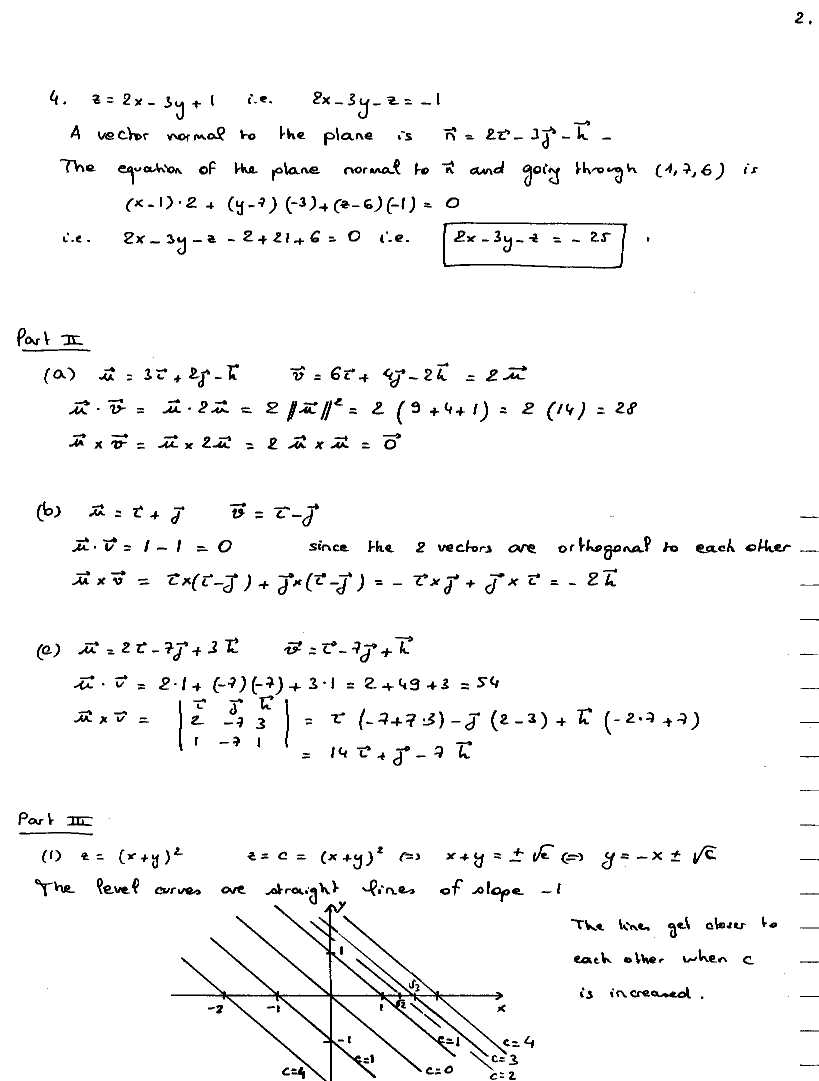 2.
4. z = 2x - 3y + 1 i.e. 2x - 3y - z = -1
A vector normal to the plane is n⃗ = 2i⃗ - 3j⃗ - k⃗ -
The equation of the plane normal to n⃗ and going through (1,7,6) is
(x-1)·2 + (y-7)(-3) + (z-6)(-1) = 0
i.e. 2x - 3y - z - 2 + 21 + 6 = 0 i.e. 2x - 3y - z = - 25 .
Part II
(a) u⃗ = 3i⃗ + 2j⃗ - k⃗ v⃗ = 6i⃗ + 4j⃗ - 2k⃗ = 2u⃗
u⃗ · v⃗ = u⃗ · 2u⃗ = 2 ||u⃗||² = 2 (9+4+1) = 2 (14) = 28
u⃗ × v⃗ = u⃗ × 2u⃗ = 2 u⃗ × u⃗ = 0⃗
(b) u⃗ = i⃗ + j⃗ v⃗ = i⃗ - j⃗
u⃗ · v⃗ = 1 - 1 = 0 since the 2 vectors are orthogonal to each other
u⃗ × v⃗ = i⃗×(i⃗-j⃗) + j⃗×(i⃗-j⃗) = - i⃗×j⃗ + j⃗×i⃗ = - 2k⃗
(c) u⃗ = 2i⃗ - 7j⃗ + 3k⃗ v⃗ = i⃗ - 7j⃗ + k⃗
u⃗ · v⃗ = 2·1 + (-7)(-7) + 3·1 = 2 + 49 + 3 = 54
i⃗ j⃗ k⃗
u⃗ × v⃗ = | 2 -7 3 | = i⃗ (-7+7·3) - j⃗ (2-3) + k⃗ (-2·7+7)
1 -7 1
= 14 i⃗ + j⃗ - 7 k⃗
Part III
(1) z = (x+y)² z = c = (x+y)² (=) x+y = ± √c (=) y = -x ± √c
The level curves are straight lines of slope -1
y
The lines get closer to
1
each other when c
is increased.
√3
-2 -1 1 √2 x
-1
c=1 c=1 c=4
c=3
c=4 c=0 c=2